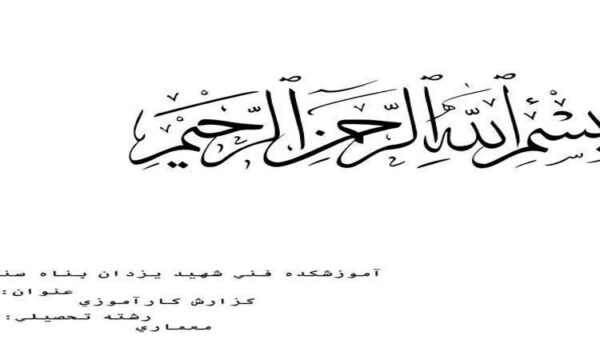 بسم الله الرحمن الرحيم
آموزشکده فني شهيد يزدان پناه
عنوان:
گزارش کارآموزي
رشته تحصيلي:
معماري